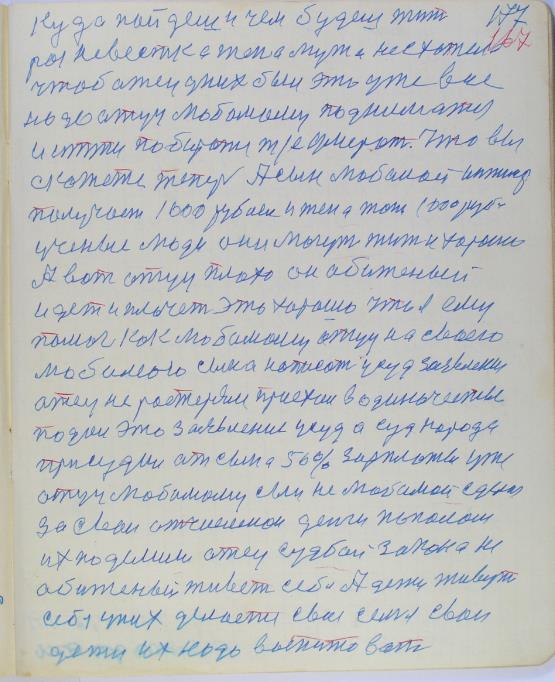 куда пойдеш и чем будеш жит 177
раз невестка жена мужа не схотела 167
чтобы отец у них был это уже вие
надо отцу любимому подниматся
и итти побирати
скажете тепер А сын любимой
получает 1000 рублей и жена тож 1000 руб
ученые люди они могут жит и хорошо
А вот отцу плохо он обиженый
идет и плачет Это хорошо что я ему
помог как любимому отцу на своего
любимого сына написат у суд заявление
отец не растерялся приехал в одиночестве
подал это заявление у суд а суд народа
присудил от сына 50% зарплоты уже
отцу любимому сын не любимой
за свои деньги пополам
их поделили отец судбой закона не
обиженый живет себе А дети живут
себе у них своя семя свои
дети их надо воспитоват